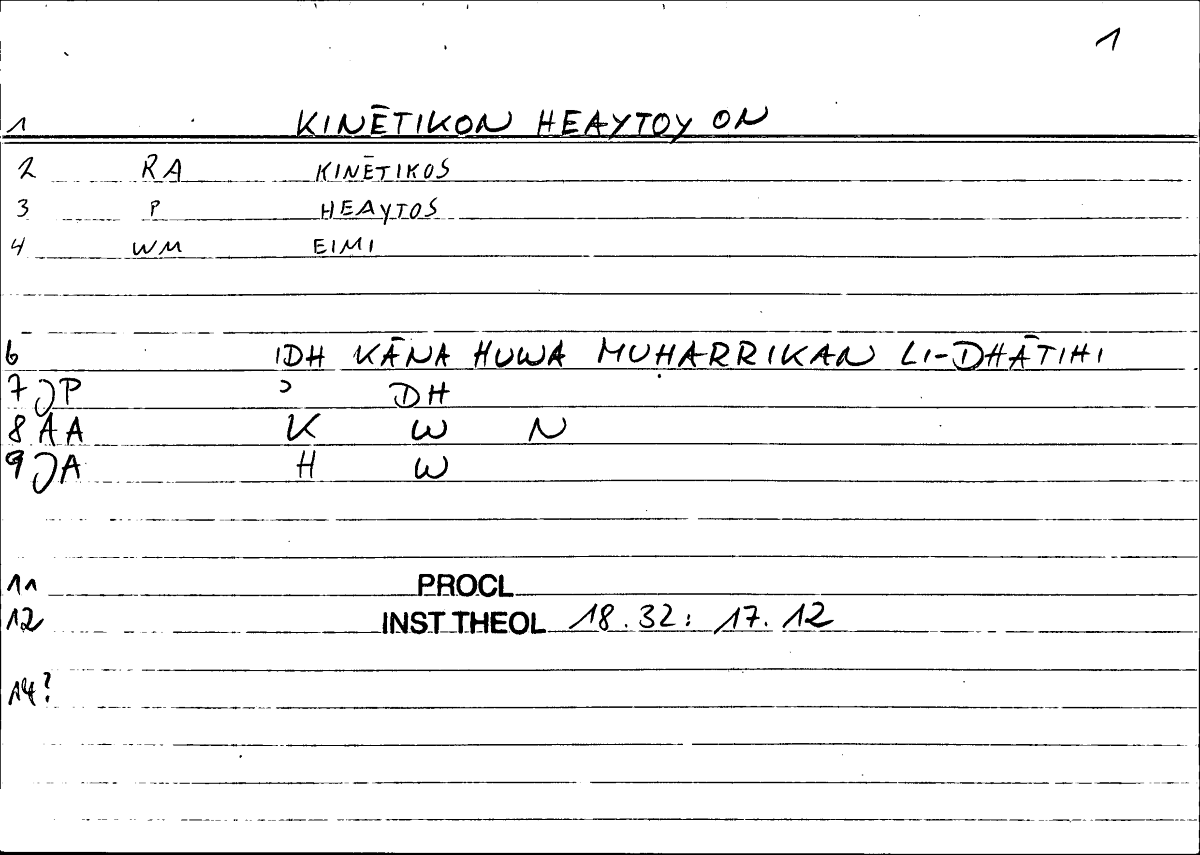 1
1 KINĒTIKON HEAYTOY ON
2 RA KINĒTIKOS
3 P HEAYTOS
4 WM EIMI
6 IDH KĀNA HUWA MUḤARRIKAN LI-DHĀTIHI
7 JP ʾ DH
8 AA K W N
9 JA H W
11 PROCL
12 INST THEOL 18.32: 17.12
14?